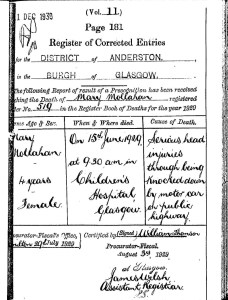 1 DEC 1930
(Vol. 11.)
Page 181
Register of Corrected Entries
for the DISTRICT of ANDERSTON.
in the BURGH of GLASGOW.
The following Report of result of a Precognition has been received
touching the Death of Mary Mollahan registered
No. 519 in the Register Book of Deaths for the year 1929
Name Age & Sex. When & Where died. Cause of Death.
Mary
Mollahan
4 years
Female.
On 15th June, 1929,
at 9.30 am in
Children's
Hospital,
Glasgow.
Serious head
injuries
through being
knocked down
by motor car
on public
highway.
Procurator-Fiscal's Office,
29th July 1929
Certified by (Signed) William Thomson
Procurator-Fiscal.
August 3rd 1929
at Glasgow.
James Welsh
Assistant Registrar